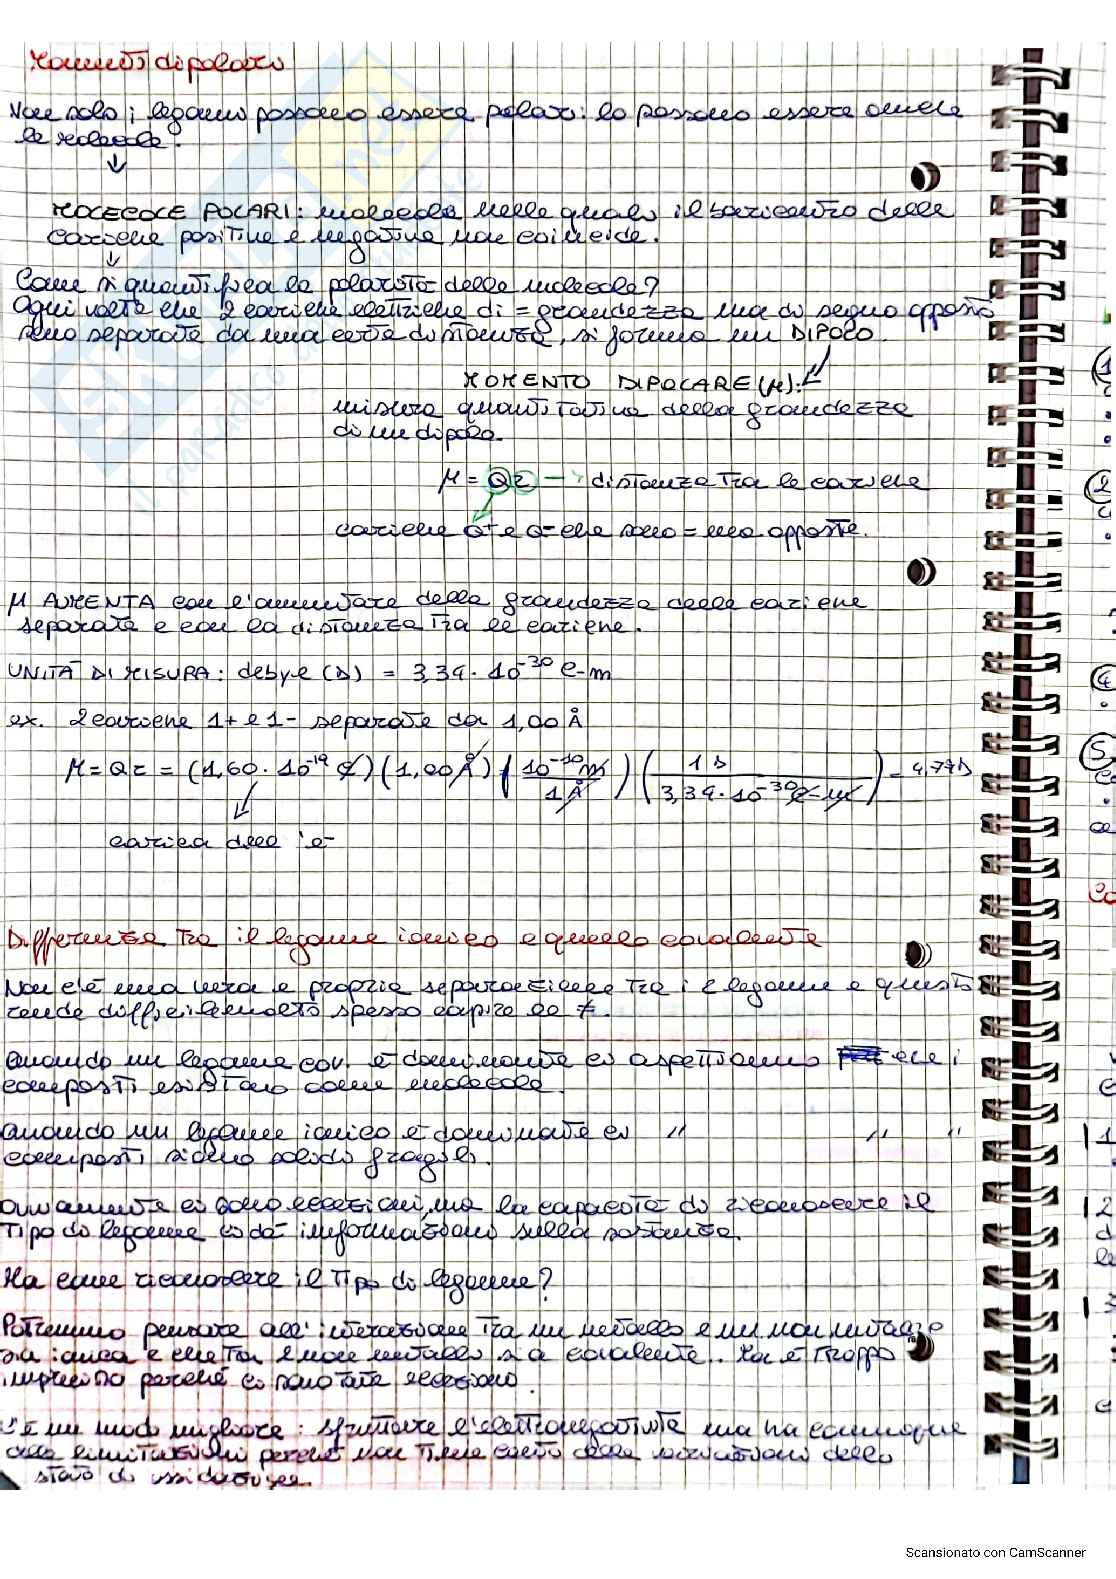 Momenti dipolari
Non solo i legami possono essere polari: lo possono essere anche
le molecole.
↓
MOLECOLE POLARI: molecola nelle quali il baricentro delle
cariche positive e negative non coincide.
↓
Come si quantifica la polarità delle molecole?
Ogni volta che 2 cariche elettriche di = grandezza ma di segno opposto
sono separate da una certa distanza, si forma un DIPOLO.
MOMENTO DIPOLARE (μ):
misura quantitativa della grandezza
di un dipolo.
μ = Qr → distanza tra le cariche
cariche Q+ e Q- che sono = ma opposte.
μ AUMENTA con l'aumentare della grandezza delle cariche
separate e con la distanza tra le cariche.
UNITÀ DI MISURA: debye (D) = 3,34 · 10⁻³⁰ C-m
ex. 2 cariche 1+ e 1- separate da 1,00 Å
μ = Qr = (1,60 · 10⁻¹⁹ C) (1,00 Å) (10⁻¹⁰ m / 1 Å) (1 D / 3,34 · 10⁻³⁰ C-m) = 4,79 D
carica dell'e-
Differenza tra il legame ionico e quello covalente
Non c'è una vera e propria separazione tra i 2 legami e questo
rende difficile molto spesso capire le ≠.
Quando un legame cov. è dominante ci aspettiamo che i
composti esistano come molecole.
Quando un legame ionico è dominante ci " " "
composti siano solidi fragili.
Ovviamente ci sono eccezioni, ma la capacità di riconoscere il
tipo di legame ci dà informazioni sulla sostanza.
Ma come riconoscere il tipo di legame?
Potremmo pensare all'interazione tra un metallo e un non metallo
sia ionica e che tra 2 non metalli sia covalente. Ma è troppo
impreciso perché ci sono tante eccezioni.
C'è un modo migliore: sfruttare l'elettronegatività ma ha comunque
delle limitazioni perché non tiene conto delle variazioni dello
stato di ossidazione.
Scansionato con CamScanner